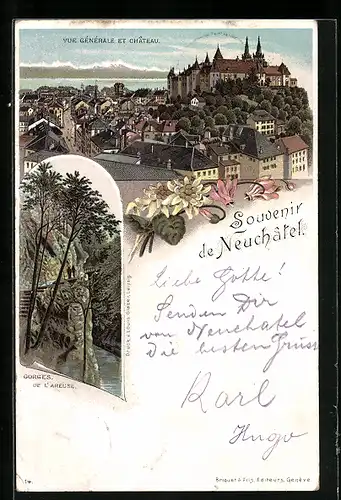 VUE GÉNÉRALE ET CHÂTEAU.
Souvenir
de Neuchâtel.
GORGES
DE L'AREUSE.
Druck v. Louis Glaser, Leipzig
Liebe Gotte!
Senden Dir
von Neuchatel
die besten Grüsse
Karl
Hugo
Briquet & Fils, Editeurs, Genève